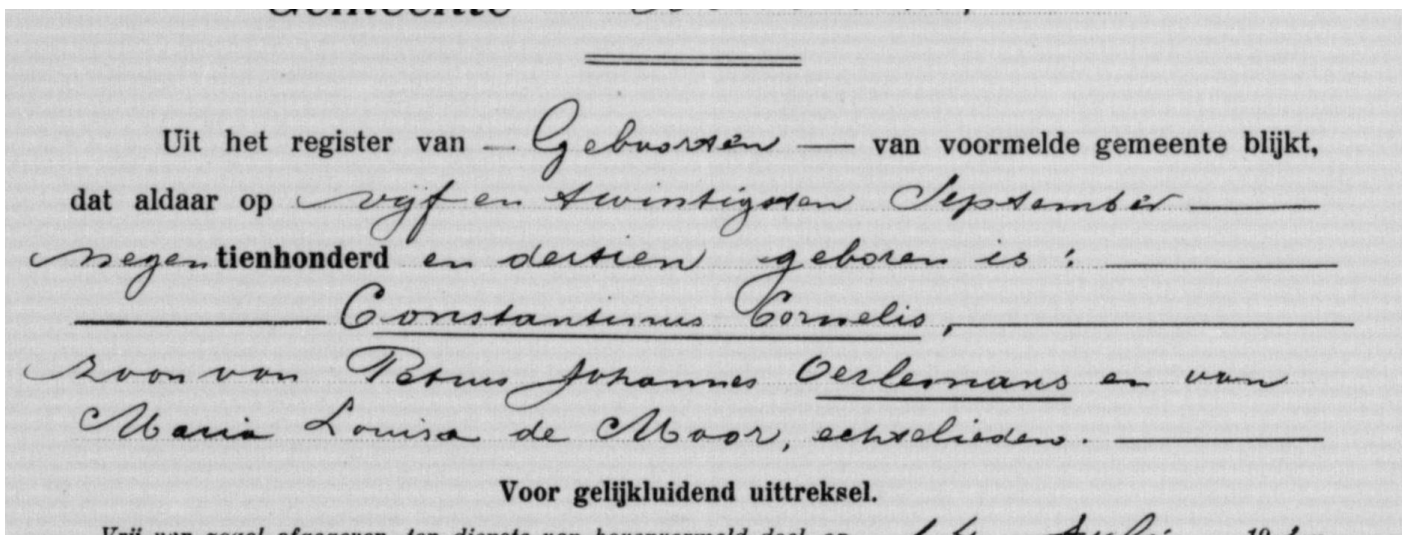 Gemeente
Uit het register van — Geboorten — van voormelde gemeente blijkt,
dat aldaar op vijf en twintigsten September
negentienhonderd en dertien geboren is:
Constantinus Cornelis,
zoon van Petrus Johannes Oerlemans en van
Maria Louisa de Moor, echtelieden.
Voor gelijkluidend uittreksel.